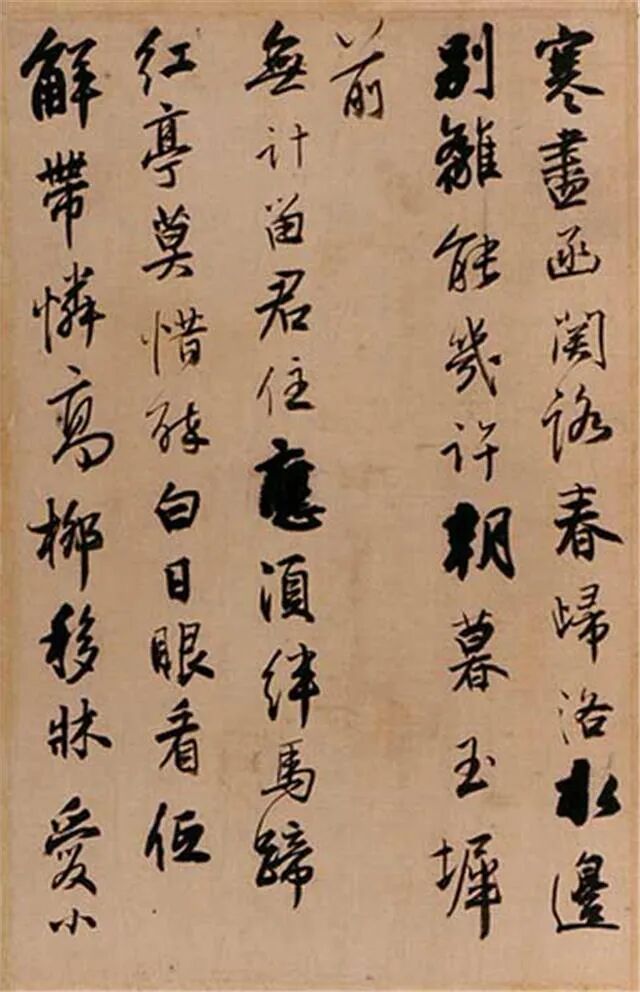 寒盡函關路春歸洛水邊
別離能幾許朝暮玉墀
前
無計留君住應須絆馬蹄
紅亭莫惜醉白日眼看低
解帶憐高柳移牀愛小